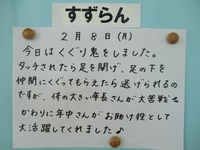 すずらん
2月8日(月)
今日はくぐり鬼をしました。
タッチされたら足を開げ、足の下を
仲間にくぐってもらえたら逃げられるの
ですが、体の大きい年長さんが大苦戦
かわりに年中さんがお助け役として
大活躍してくれました♪